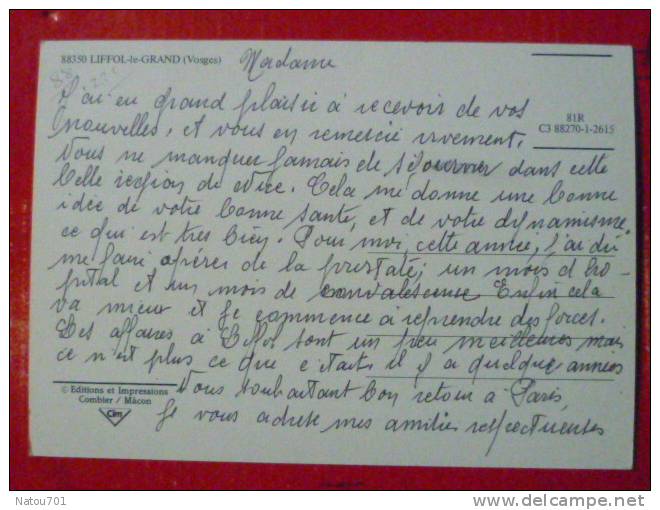 88350 LIFFOL-le-GRAND (Vosges)
Madame
J'ai eu grand plaisir à recevoir de vos
nouvelles, et vous en remercie vivement.
81R
C3 88270-1-2615
Vous ne manquer jamais de séjourner dans cette
belle région de Nice. Cela me donne une bonne
idée de votre bonne santé, et de votre dynamisme
ce qui est très bien. Pour moi, cette année, j'ai dû
me faire opérer de la prostate; un mois d'ho-
pital et un mois de convalescence Enfin cela
va mieux et je commence à reprendre des forces.
Les affaires à Liffol sont un peu meilleures mais
ce n'est plus ce que c'était il y a quelques années
© Editions et Impressions
Combier / Mâcon
Cim
Vous souhaitant bon retour à Paris,
Je vous adresse mes amitiés respectueuses
Natou701